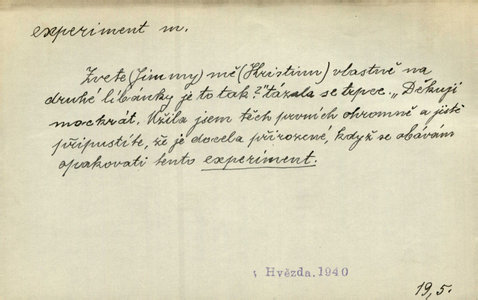 experiment m.
Zvete (Jimmy) mě (Kristinu) vlastně na
druhé líbánky, je to tak?" tázala se trpce. „Děkuji
mockrát. Užila jsem těch prvních ohromně a jistě
připustíte, že je docela přirozené, když se obávám
opakovati tento experiment.
Hvězda. 1940
19, 5.